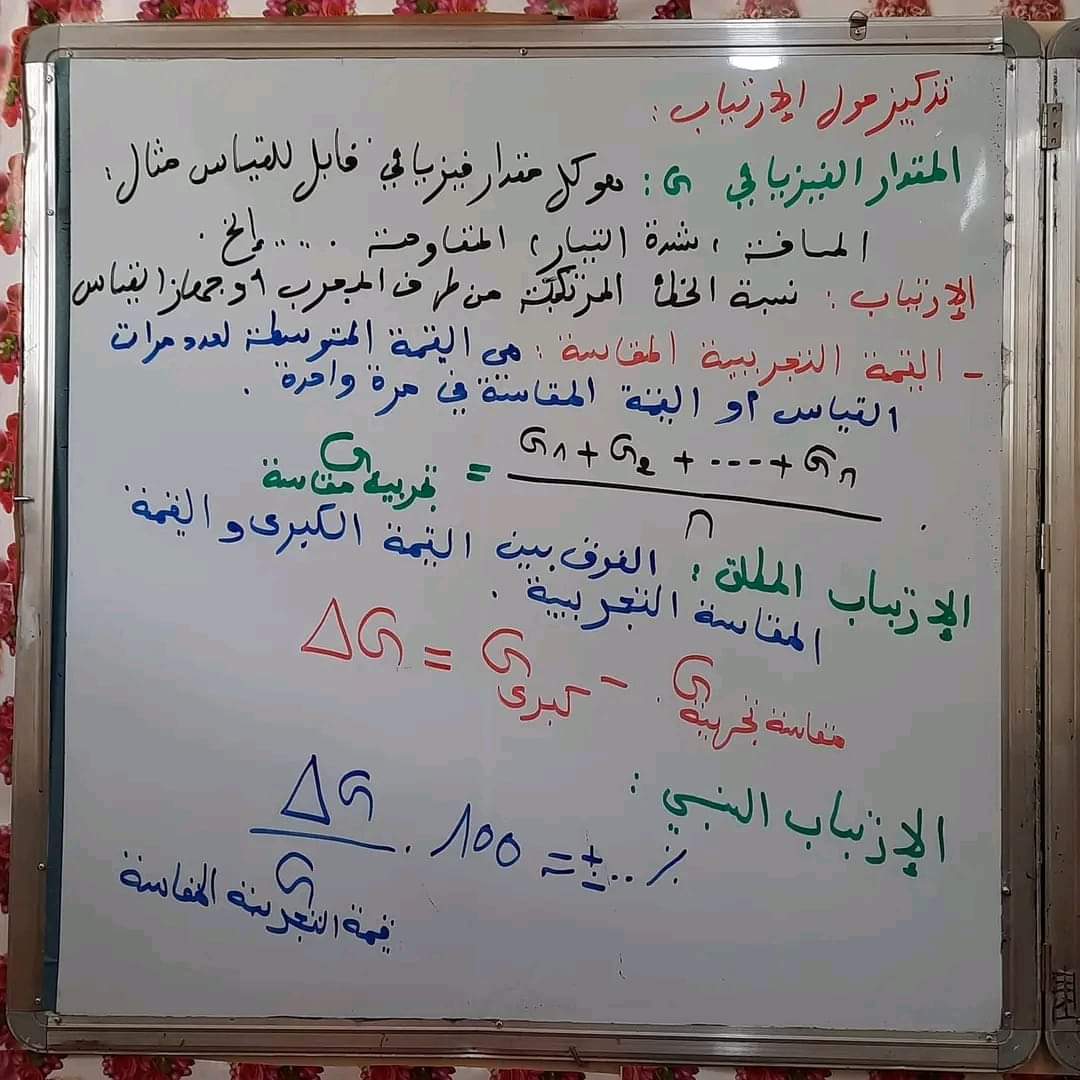 تذكير حول الإرتياب :
المقدار الفيزيائي G : هو كل مقدار فيزيائي قابل للقياس مثال :
المسافة ، شدة التيار ، المقاومة ..... إلخ .
الإرتياب : نسبة الخطأ المرتكبة من طرف المجرب أو جهاز القياس
- القيمة التجريبية المقاسة : هي القيمة المتوسطة لعدد مرات
القياس أو القيمة المقاسة في مرة واحدة .
G تجريبية مقاسة = (G1 + G2 + ---- + Gn) / n .
الإرتياب المطلق : الفرق بين القيمة الكبرى و القيمة
المقاسة التجريبية .
ΔG = G كبرى - G مقاسة تجريبية
الإرتياب النسبي :
ΔG / G قيمة التجريبية المقاسة . 100 = ± .. %